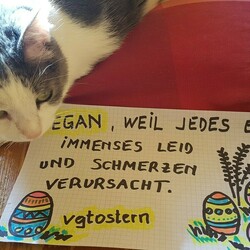 EGAN, WEIL JEDES E
IMMENSES LEID
UND SCHMERZEN
VERURSACHT.
vgtostern